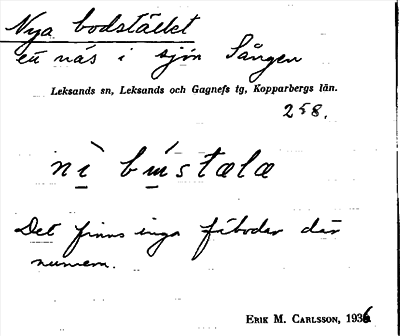 Nya bodstället
ett näs i sjön Sången
Leksands sn, Leksands och Gagnefs tg, Kopparbergs län.
258.
nì bústælæ
Det finns inga fäbodar där
numera.
ERIK M. CARLSSON, 1936